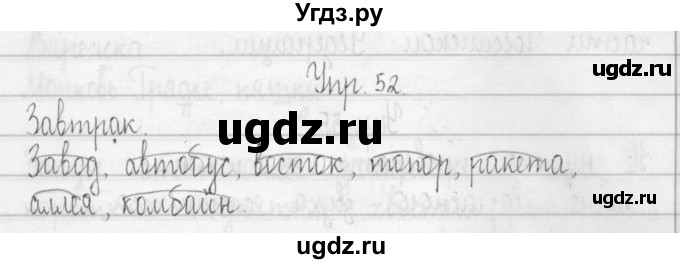 Угдз.ру
Упр. 52
Завтрак.
ugdz.ru
Завод, автобус, восток, топор, ракета,
аллея, комбайн.
ugdz.ru
ugdz.ru